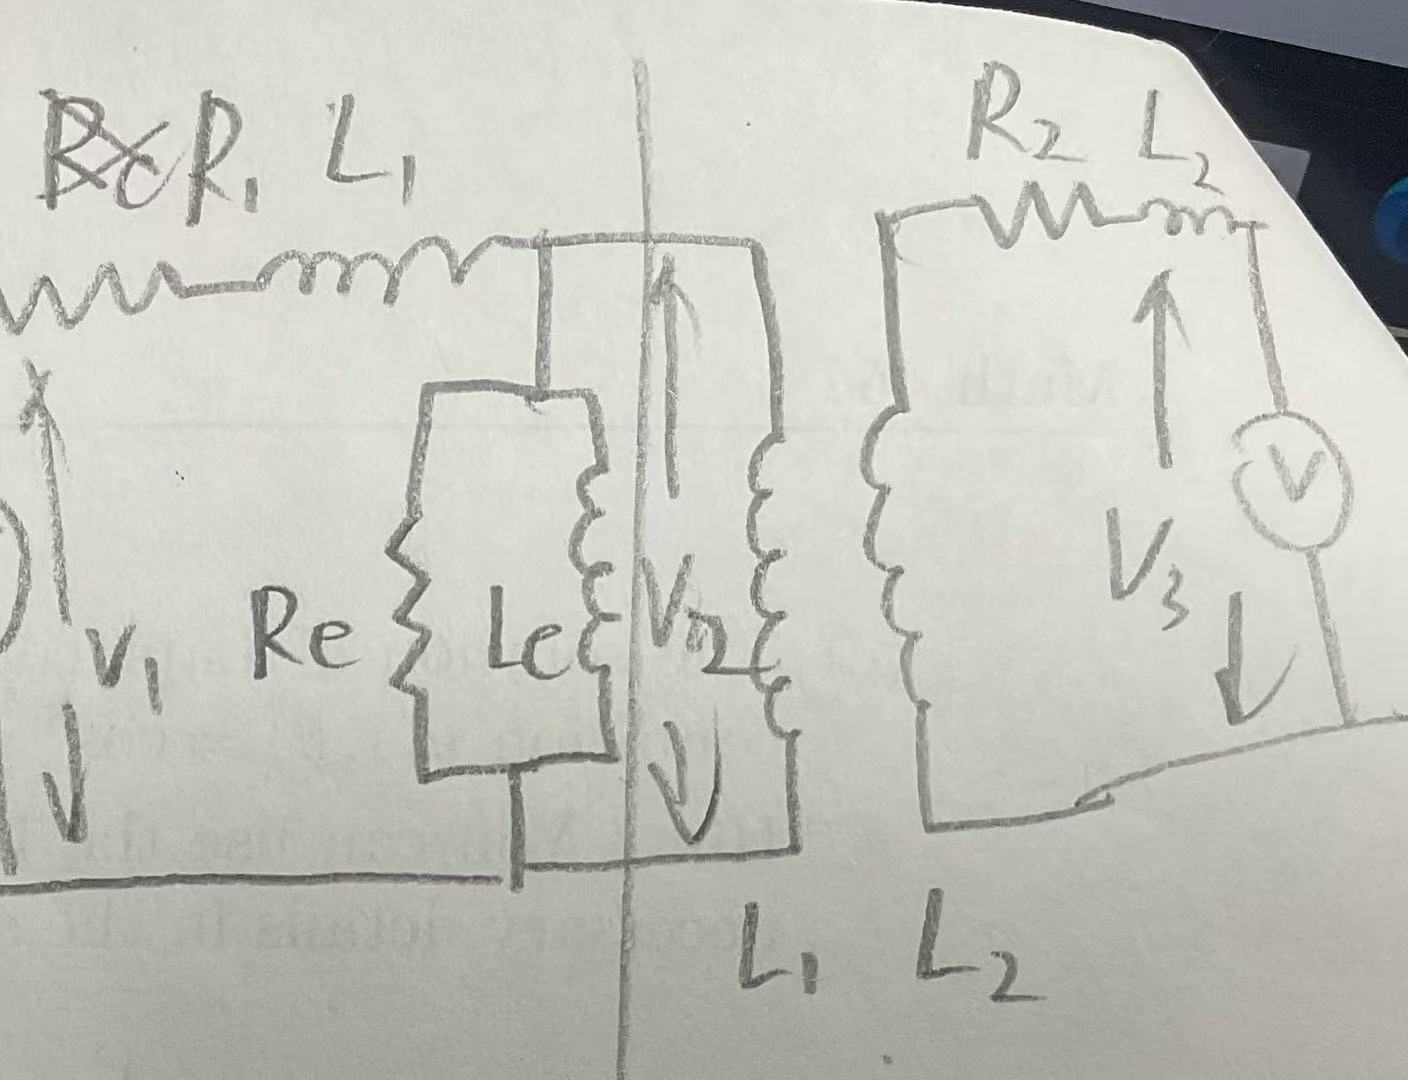 R₁ L₁
R₂ L₂
V₁
Re
Le
V₂
V₃
V
L₁ L₂